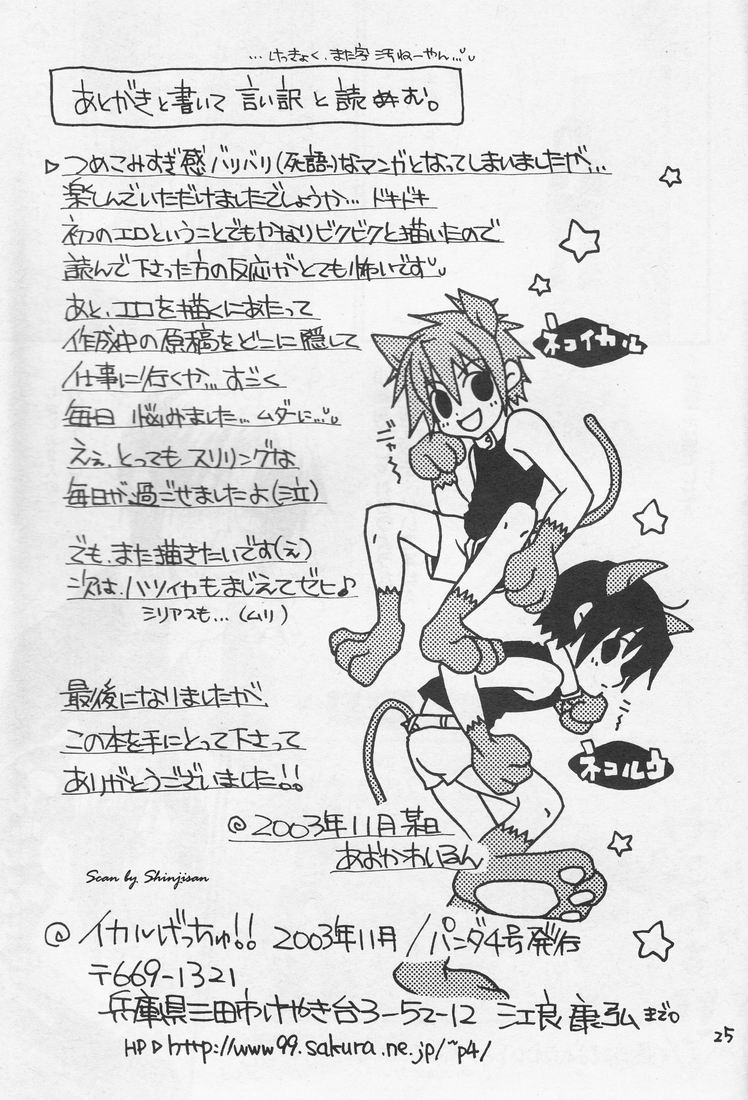 …けっきょく、また字 汚ねーやん…
あとがきと書いて 言い訳 と 読む。
つめこみすぎ感バリバリ(死語)なマンガとなってしまいましたが…
楽しんでいただけましたでしょうか… ドキドキ
初のエロということでもかなりビクビクと描いたので
読んで下さった方の反応がとても怖いです
あと、エロを描くにあたって
作成中の原稿をどこに隠して
仕事に行くか… すごく
毎日 悩みました… ムダに…
ええ、とっても スリリングな
毎日が過ごせましたよ(泣)
でも、また描きたいです(え)
次は、ハツィカもまじえてゼヒ♪
ミリアスも…(ムリ)
ネコイカル
ニャ〜
ネコルウ
最後になりましたが、
この本を手にとって下さって
ありがとうございました!!
@2003年11月某日
あおかわいるん
Scan by Shinjisan
@ イカルげっちゅ!! 2003年11月/パンダ4号発行
〒669-1321
兵庫県三田市けやき台3-52-12
HP▷http://www99.sakura.ne.jp/~p4/
25